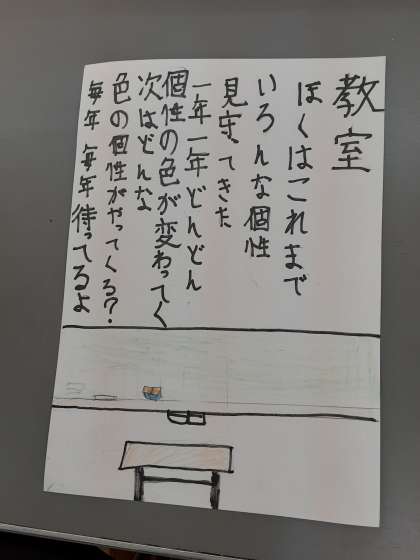 教室
ぼくはこれまで
いろんな個性
見守ってきた
一年一年どんどん
個性の色が変わってく
次はどんな
色の個性がやってくる?
毎年毎年待ってるよ